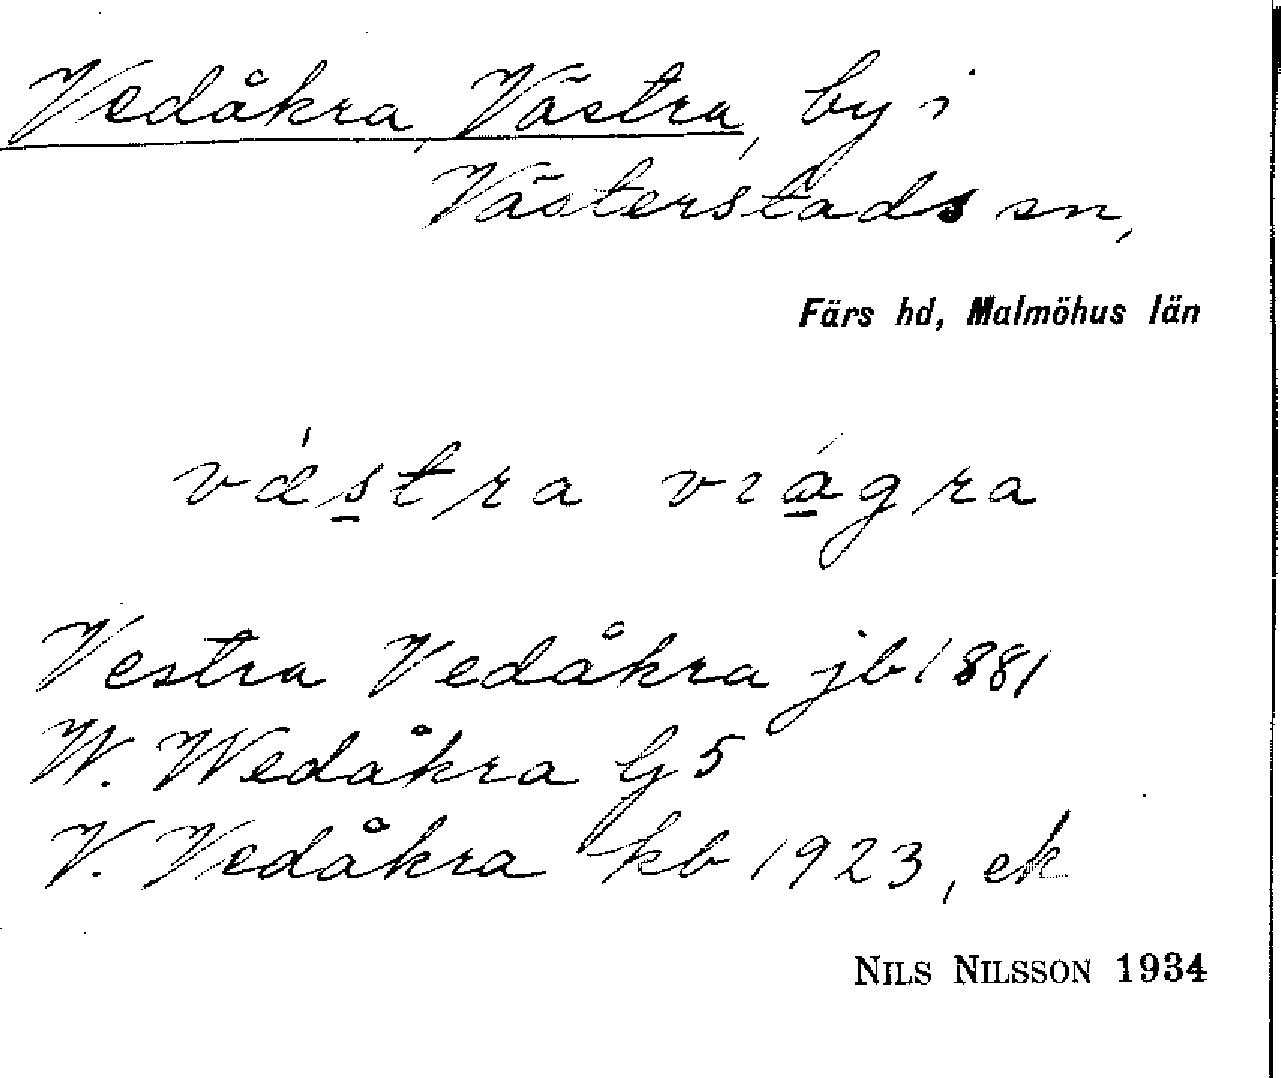 Vedåkra, Västra, by i
Västerstads sn,
Färs hd, Malmöhus län
væ̀stra vıàgra
Vestra Vedåkra jb 1881
W. Wedåkra G 5
V. Vedåkra kb 1923, ek
NILS NILSSON 1934